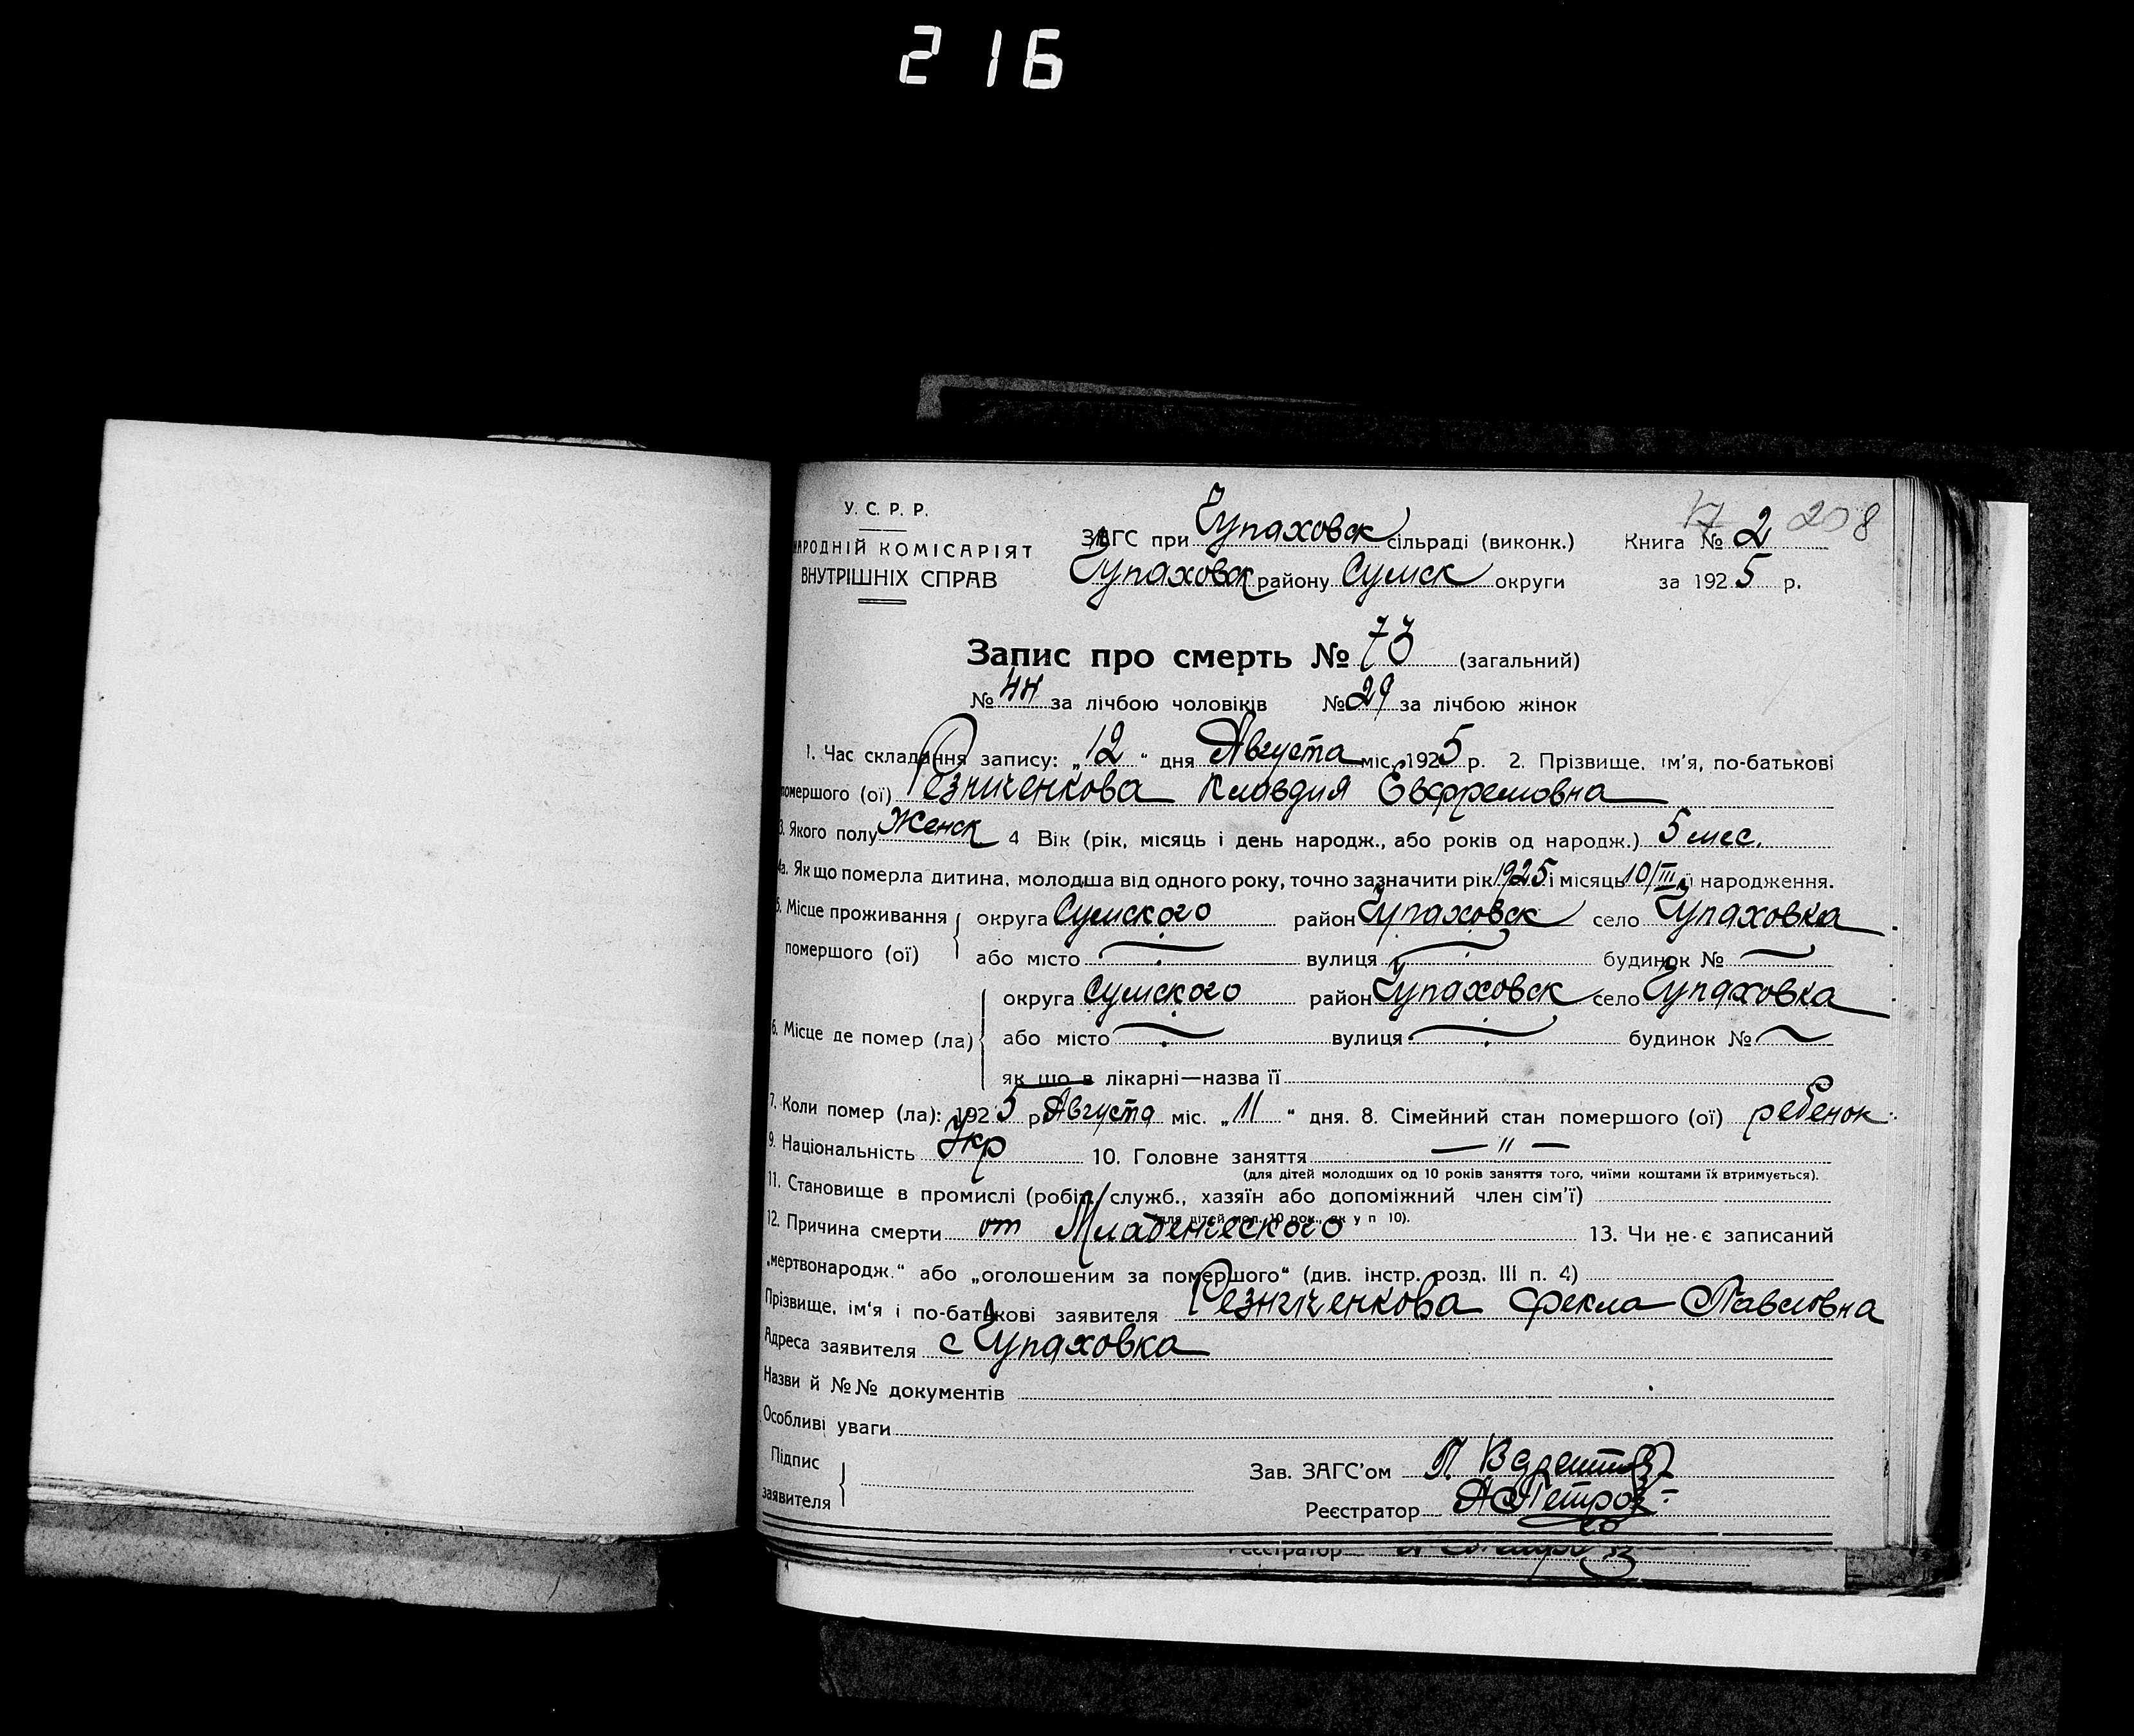 216
У. С. Р. Р.
НАРОДНІЙ КОМІСАРІЯТ
ВНУТРІШНІХ СПРАВ
ЗАГС при Чупаховск сільраді (виконк.)
Чупаховск району Сумск округи
17 208
Книга № 2
за 1925 р.
Запис про смерть № 73 (загальний)
№ 44 за лічбою чоловіків № 29 за лічбою жінок
1. Час складання запису: „12“ дня Августа міс. 1925 р. 2. Прізвище, ім'я, по-батькові
помершого (ої) Резниченкова Клавдия Евфремовна
3. Якого полу Женск 4 Вік (рік, місяць і день народж., або років од народж.) 5 мес.
4а. Як що померла дитина, молодша від одного року, точно зазначити рік 1925 і місяць 10/III її народження.
5. Місце проживання помершого (ої) округа Сумского район Чупаховск село Чупаховка
або місто вулиця будинок №
6. Місце де помер (ла) округа Сумского район Чупаховск село Чупаховка
або місто вулиця будинок №
як що в лікарні—назва її
7. Коли помер (ла): 1925 р. Августа міс. „11“ дня. 8. Сімейний стан помершого (ої) ребенок
9. Національність Укр 10. Головне заняття — " —
(для дітей молодших од 10 років заняття того, чиїми коштами їх втримується).
11. Становище в промислі (робіт., служб., хазяїн або допоміжний член сім'ї)
(для дітей мол. 10 рок., як у п 10).
12. Причина смерти от Младенческого 13. Чи не є записаний
„мертвонародж.“ або „оголошеним за помершого“ (див. інстр. розд. III п. 4)
Прізвище, ім'я і по-батькові заявителя Резниченкова Фекла Павловна
Адреса заявителя с Чупаховка
Назви й №№ документів
Особливі уваги
Підпис
заявителя
Зав. ЗАГС'ом П.
Реєстратор А Петров
Реєстратор